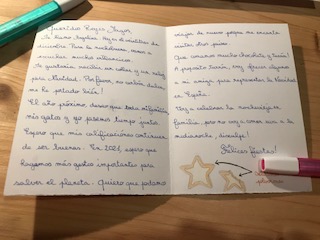 Queridos Reyes Magos,
Me llamo Hoy es el veinticinco de
diciembre. Para la nochebuena, vamos a
escuchar mucho villancicos.
Me gustaría recibir un collar y un reloj
para Navidad. Por favor, no carbón, dulces,
me he portado bien!
El año próximo deseo que todo
más gatos y lo pasemos tiempo juntos.
Espero que mis calificaciones continuen
de ser buenas. En 2021, espero que
hagamos más gestos importantes para
salvar el planeta. Quiero que podamos
viajar de nuevo porque me encanta
visitar otro países.
Que comamos mucho chocolate y turrón!
A propósito turrón, voy ofrecer algunos
a mi amiga para representar la Navidad
en España.
Voy a celebrar la nochevieja en
familia, pero no voy a comer uva a la
medianoche, disculpe!
¡Felices fiestas!